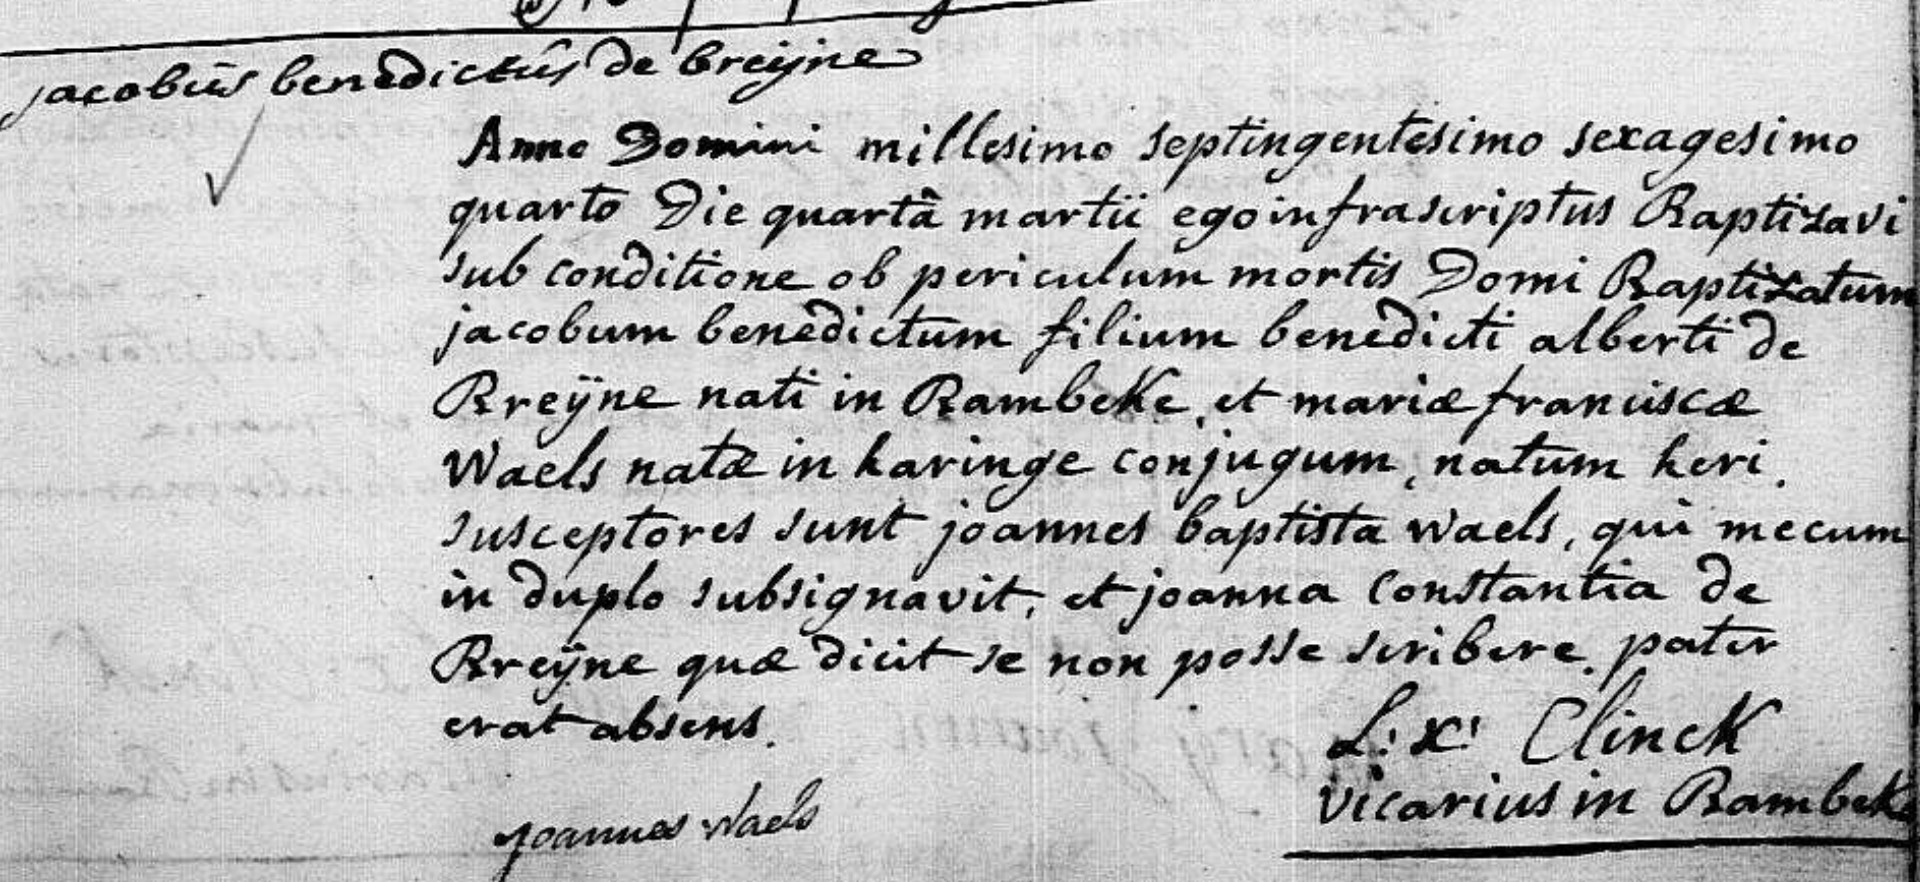 jacobus benedictus de breÿne
Anno Domini millesimo septingentesimo sexagesimo
quarto Die quartâ martii ego infrascriptus Baptizavi
sub conditione ob periculum mortis Domi Baptizatum
jacobum benedictum filium benedicti alberti de
Breÿne nati in Bambeke, et mariæ franciscæ
Waels natæ in haringe conjugum, natum heri.
susceptores sunt joannes baptista waels, qui mecum
in duplo subsignavit, et joanna Constantia de
Breÿne quæ dicit se non posse scribere. pater
erat absens.
L: X: Clinck
vicarius in Bambeke
joannes Waels